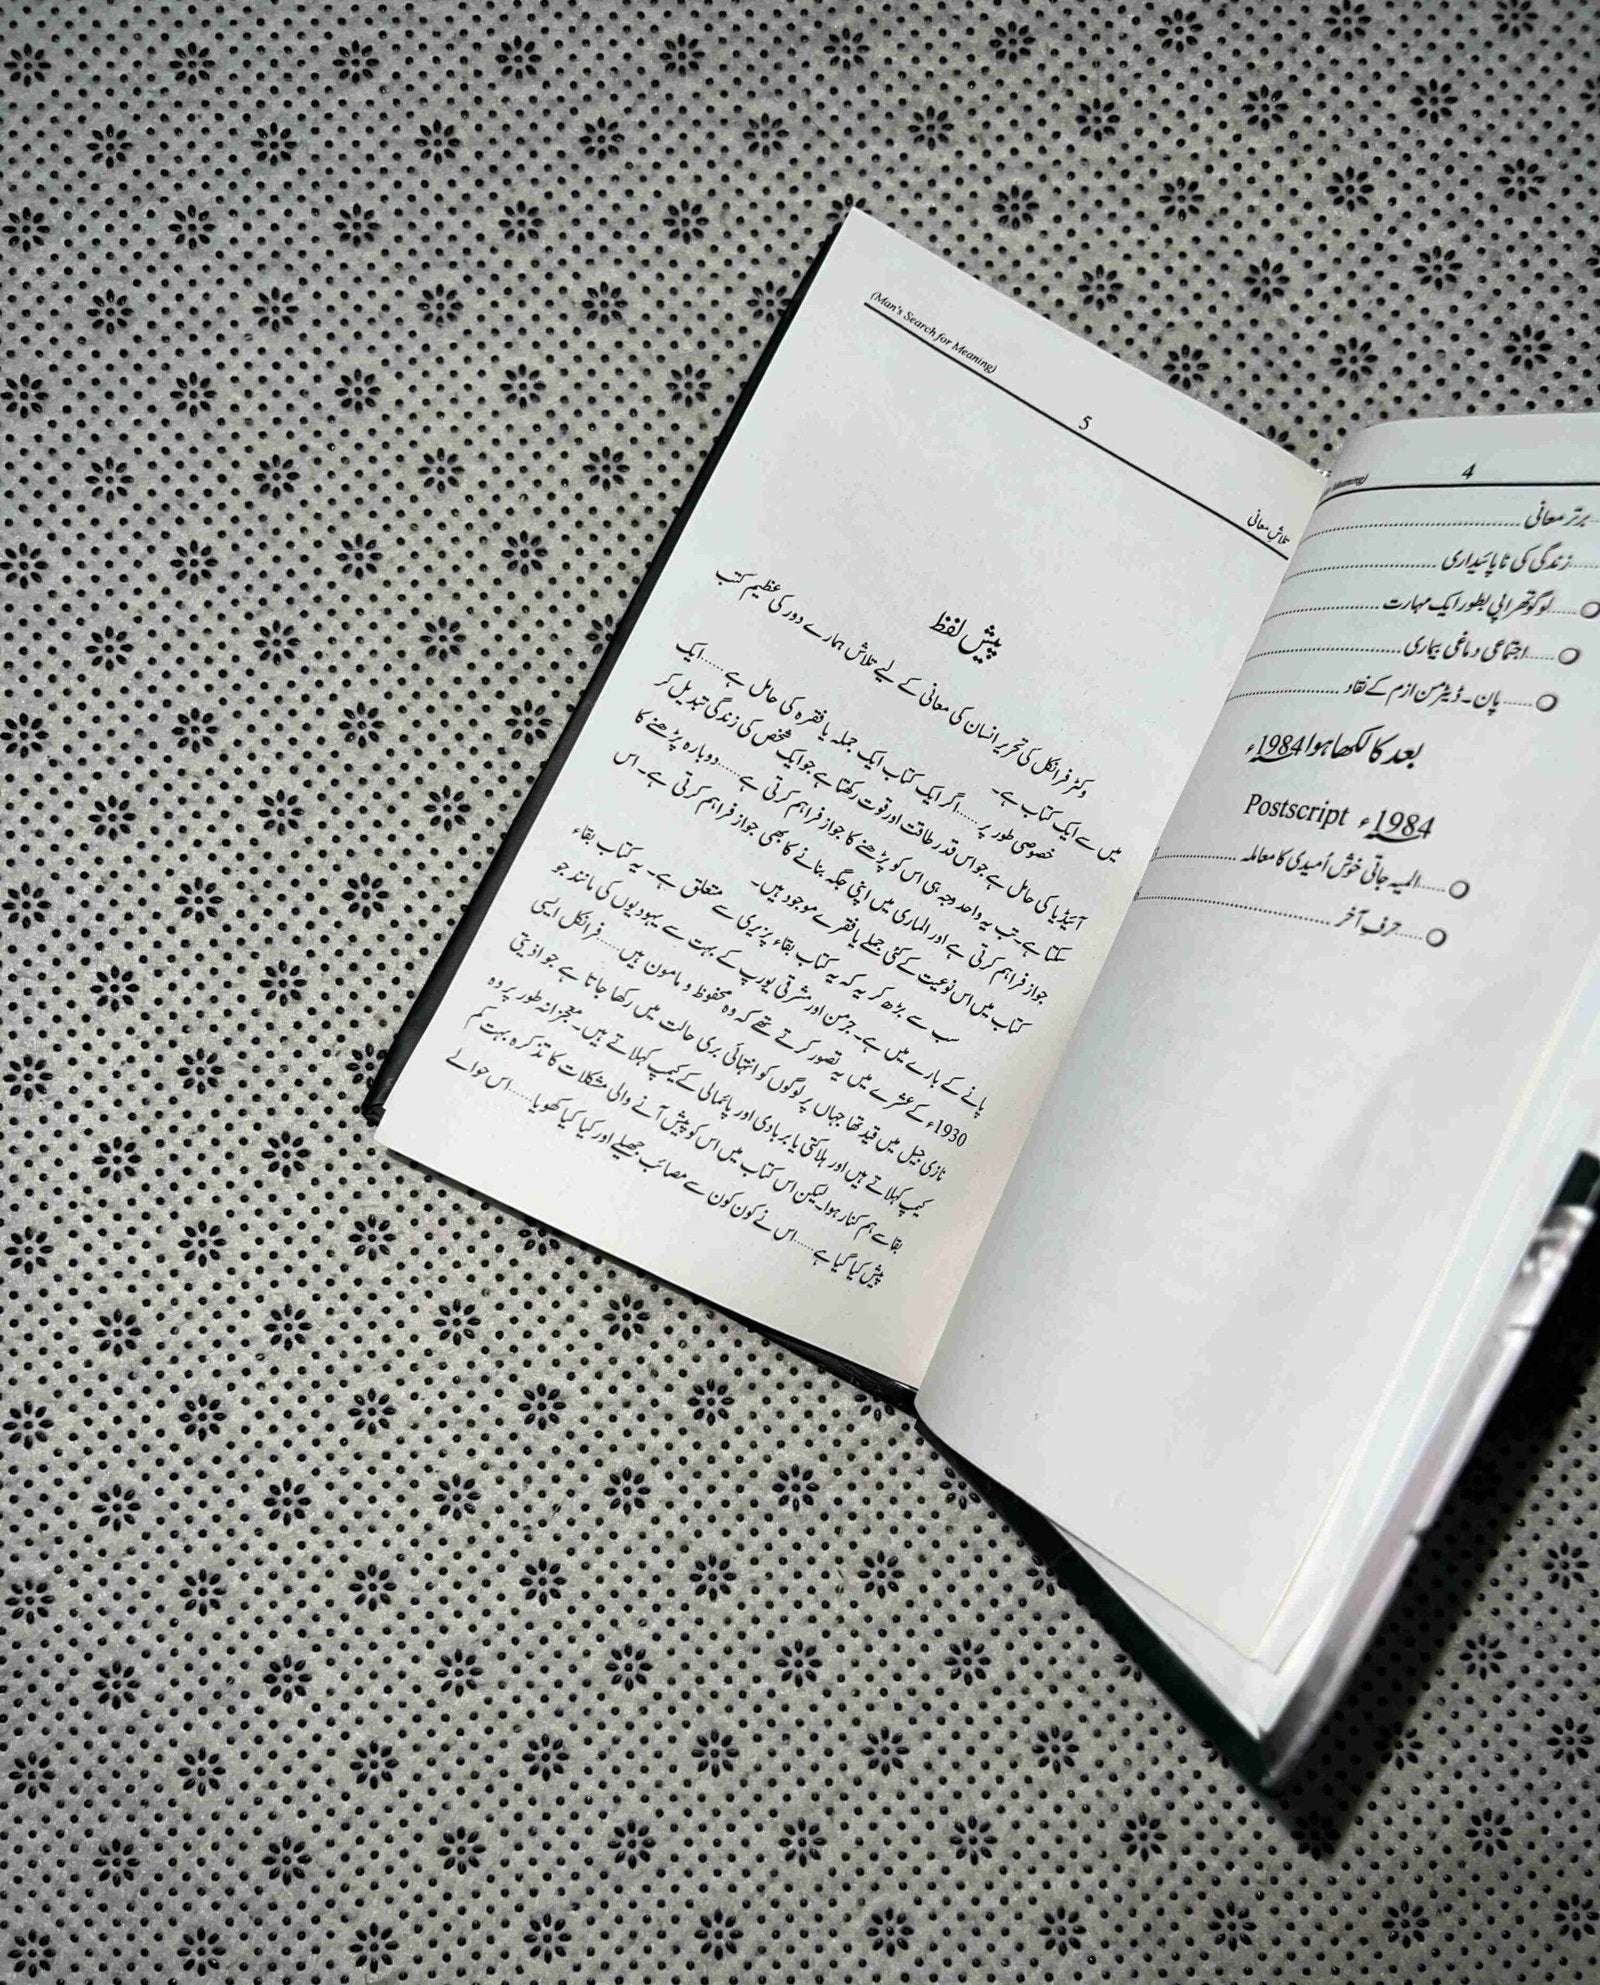 4
برتر معانی
زندگی کی ناپائیداری
لوگوتھراپی بطور ایک مہارت
اجتماعی دماغی بیماری
پان۔ڈیٹرمن ازم کے نقاد
بعد کا لکھا ہوا 1984ء
Postscript 1984ء
المیہ جاتی خوش اُمیدی کا معاملہ
حرفِ آخر
تلاشِ معانی 5 (Man's Search for Meaning)
پیش لفظ
وکٹر فرانکل کی تحریر انسان کی معانی کے لیے تلاش ہمارے دور کی عظیم کتب
میں سے ایک کتاب ہے۔
خصوصی طور پر.....اگر ایک کتاب ایک جملہ یا فقرہ کی حامل ہے.....ایک
آئیڈیا کی حامل ہے جو اس قدر طاقت اور قوت رکھتا ہے جو ایک شخص کی زندگی تبدیل کر
سکتا ہے۔ تب یہ واحد وجہ ہی اس کو پڑھنے کا جواز فراہم کرتی ہے.....دوبارہ پڑھنے کا
جواز فراہم کرتی ہے اور الماری میں اپنی جگہ بنانے کا بھی جواز فراہم کرتی ہے۔ اس
کتاب میں اس نوعیت کے کئی جملے یا فقرے موجود ہیں۔
سب سے بڑھ کر یہ کہ یہ کتاب بقاء پزیری سے متعلق ہے۔ یہ کتاب بقاء
پانے کے بارے میں ہے۔ جرمن اور مشرقی یورپ کے بہت سے یہودیوں کی مانند جو
1930ء کے عشرے میں یہ تصور کرتے تھے کہ وہ محفوظ و مامون ہیں.....فرانکل ایسی
نازی جیل میں قید تھا جہاں پر لوگوں کو انتہائی بری حالت میں رکھا جاتا ہے جو اذیتی
کیمپ کہلاتے ہیں اور ہلاکتی یا بربادی اور پائمالی کے کیمپ کہلاتے ہیں۔ معجزانہ طور پر وہ
بقا سے ہم کنار ہوا۔ لیکن اس کتاب میں اس کو پیش آنے والی مشکلات کا تذکرہ بہت کم
پیش کیا گیا ہے.....اس نے کون کون سے مصائب جھیلے اور کیا کیا کھویا.....اس حوالے